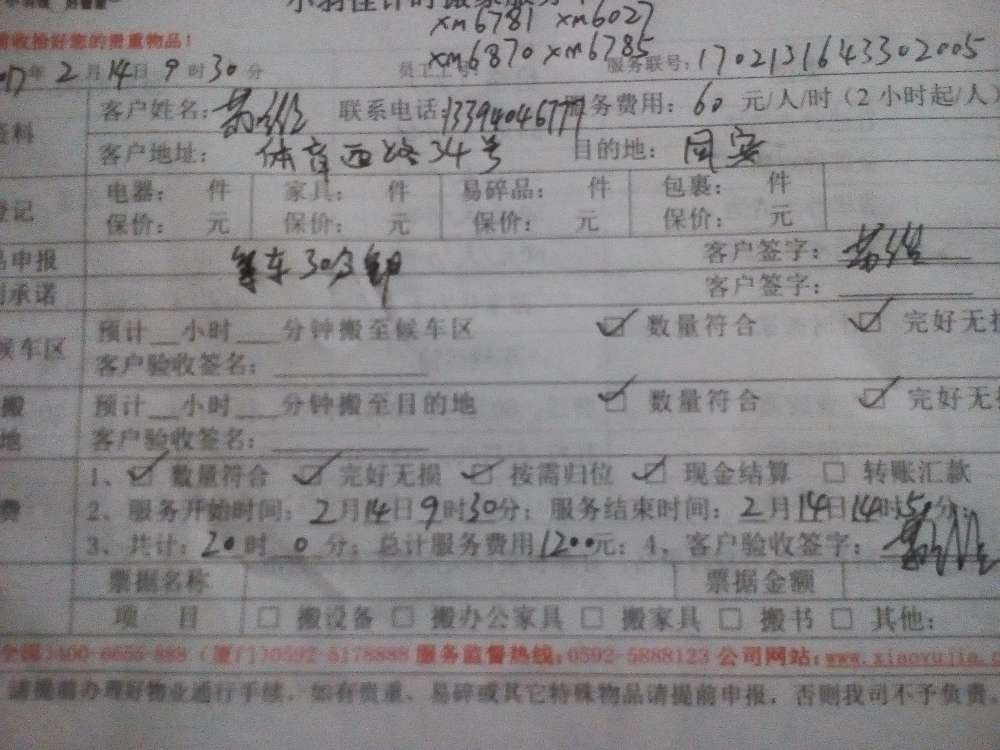 收拾好您的贵重物品!
xm6781 xm6027
xm6870 xm6785
2月14日9时30分 服务联号:1702131643302005
客户姓名: 联系电话:13394046777 服务费用:60元/人/时(2小时起/人)
客户地址:体育西路34号 目的地:同安
登记 电器: 件 家具: 件 易碎品: 件 包裹: 件
保价: 元 保价: 元 保价: 元 保价: 元
申报 等车30分钟 客户签字:
承诺 客户签字:
预计__小时___分钟搬至候车区 ☑数量符合 ☑完好无损
候车区 客户验收签名:
搬 预计__小时___分钟搬至目的地 ☑数量符合 ☑完好无损
地 客户验收签名:
1、☑数量符合 ☑完好无损 ☑按需归位 ☑现金结算 □转账汇款
费 2、服务开始时间:2月14日9时30分;服务结束时间:2月14日14时5分;
3、共计:20时0分;总计服务费用1200元;4、客户验收签字:
票据名称 票据金额
项 目 □搬设备 □搬办公家具 □搬家具 □搬书 □其他:
(全国)400-6655-888 (厦门)0592-5178888 服务监督热线:0592-5888123 公司网站:www.xiaoyujia.
请提前办理好物业通行手续,如有贵重、易碎或其它特殊物品请提前申报,否则我司不予负责。